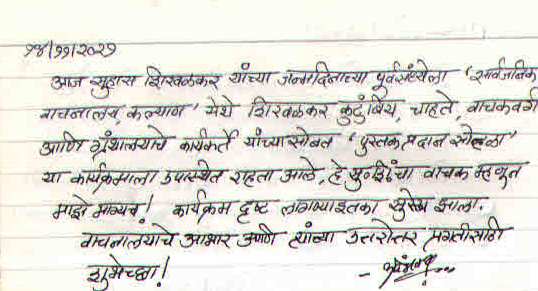 १४/११/२०२१
आज सुहास शिरवळकर यांच्या जन्मदिनाच्या पूर्वसंध्येला 'सार्वजनिक
वाचनालय, कल्याण' येथे शिरवळकर कुटुंबिय, चाहते, वाचकवर्ग
आणि ग्रंथालयाचे कार्यकर्ते यांच्यासोबत 'पुस्तक प्रदान सोहळा'
या कार्यक्रमाला उपस्थित राहता आले, हे सु.शिं.चा वाचक म्हणून
माझे भाग्यच! कार्यक्रम दृष्ट लागण्याइतका सुरेख झाला.
वाचनालयाचे आभार आणि त्यांच्या उत्तरोत्तर प्रगतीसाठी
शुभेच्छा!